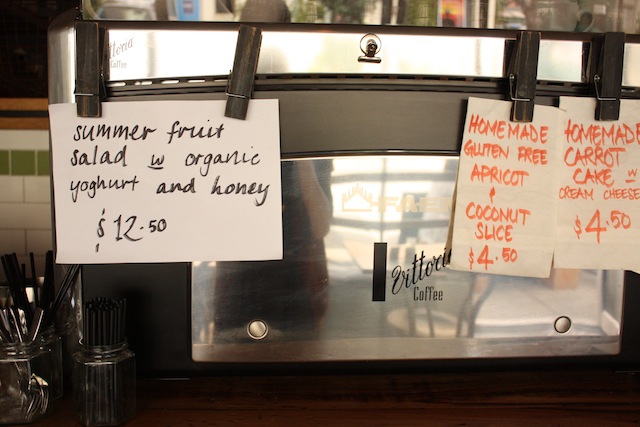 Vittoria
Coffee
summer fruit
salad w organic
yoghurt and honey
$12.50
HOMEMADE
GLUTEN FREE
APRICOT
&
COCONUT
SLICE
$4.50
HOMEMADE
CARROT
CAKE w
CREAM CHEESE
$4.50
Vittoria
Coffee